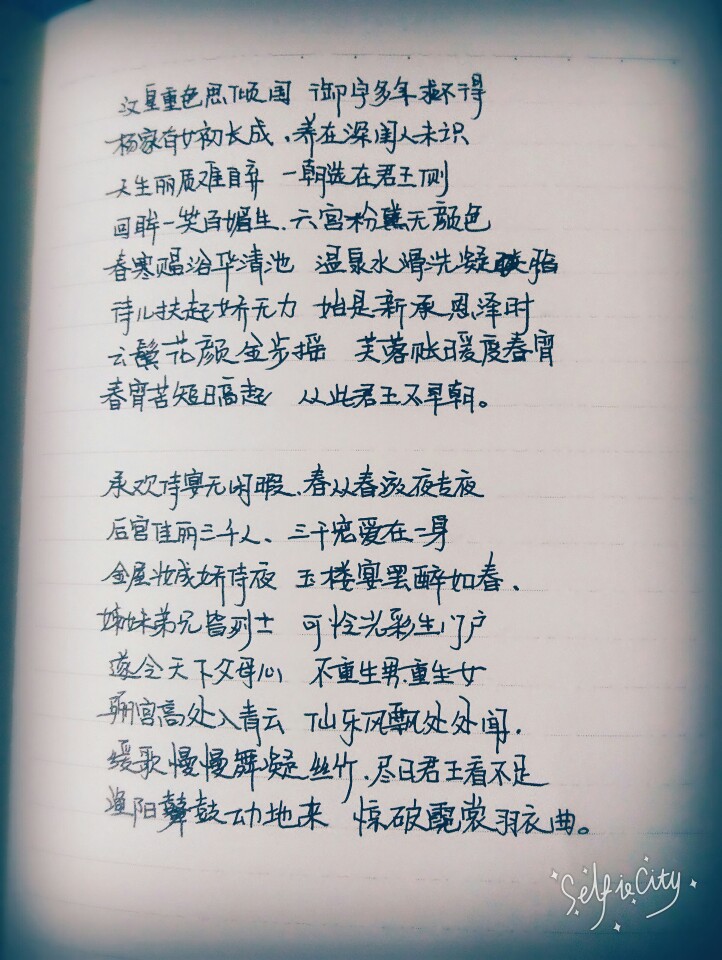 汉皇重色思倾国 御宇多年求不得
杨家有女初长成、养在深闺人未识
天生丽质难自弃 一朝选在君王侧
回眸一笑百媚生、六宫粉黛无颜色
春寒赐浴华清池 温泉水滑洗凝脂
侍儿扶起娇无力 始是新承恩泽时
云鬓花颜金步摇 芙蓉帐暖度春宵
春宵苦短日高起 从此君王不早朝。
承欢侍宴无闲暇、春从春游夜专夜
后宫佳丽三千人、三千宠爱在一身
金屋妆成娇侍夜 玉楼宴罢醉如春、
姊妹弟兄皆列士 可怜光彩生门户
遂令天下父母心 不重生男重生女
骊宫高处入青云 仙乐风飘处处闻、
缓歌慢慢舞凝丝竹、尽日君王看不足
渔阳鼙鼓动地来 惊破霓裳羽衣曲。
SelfieCity